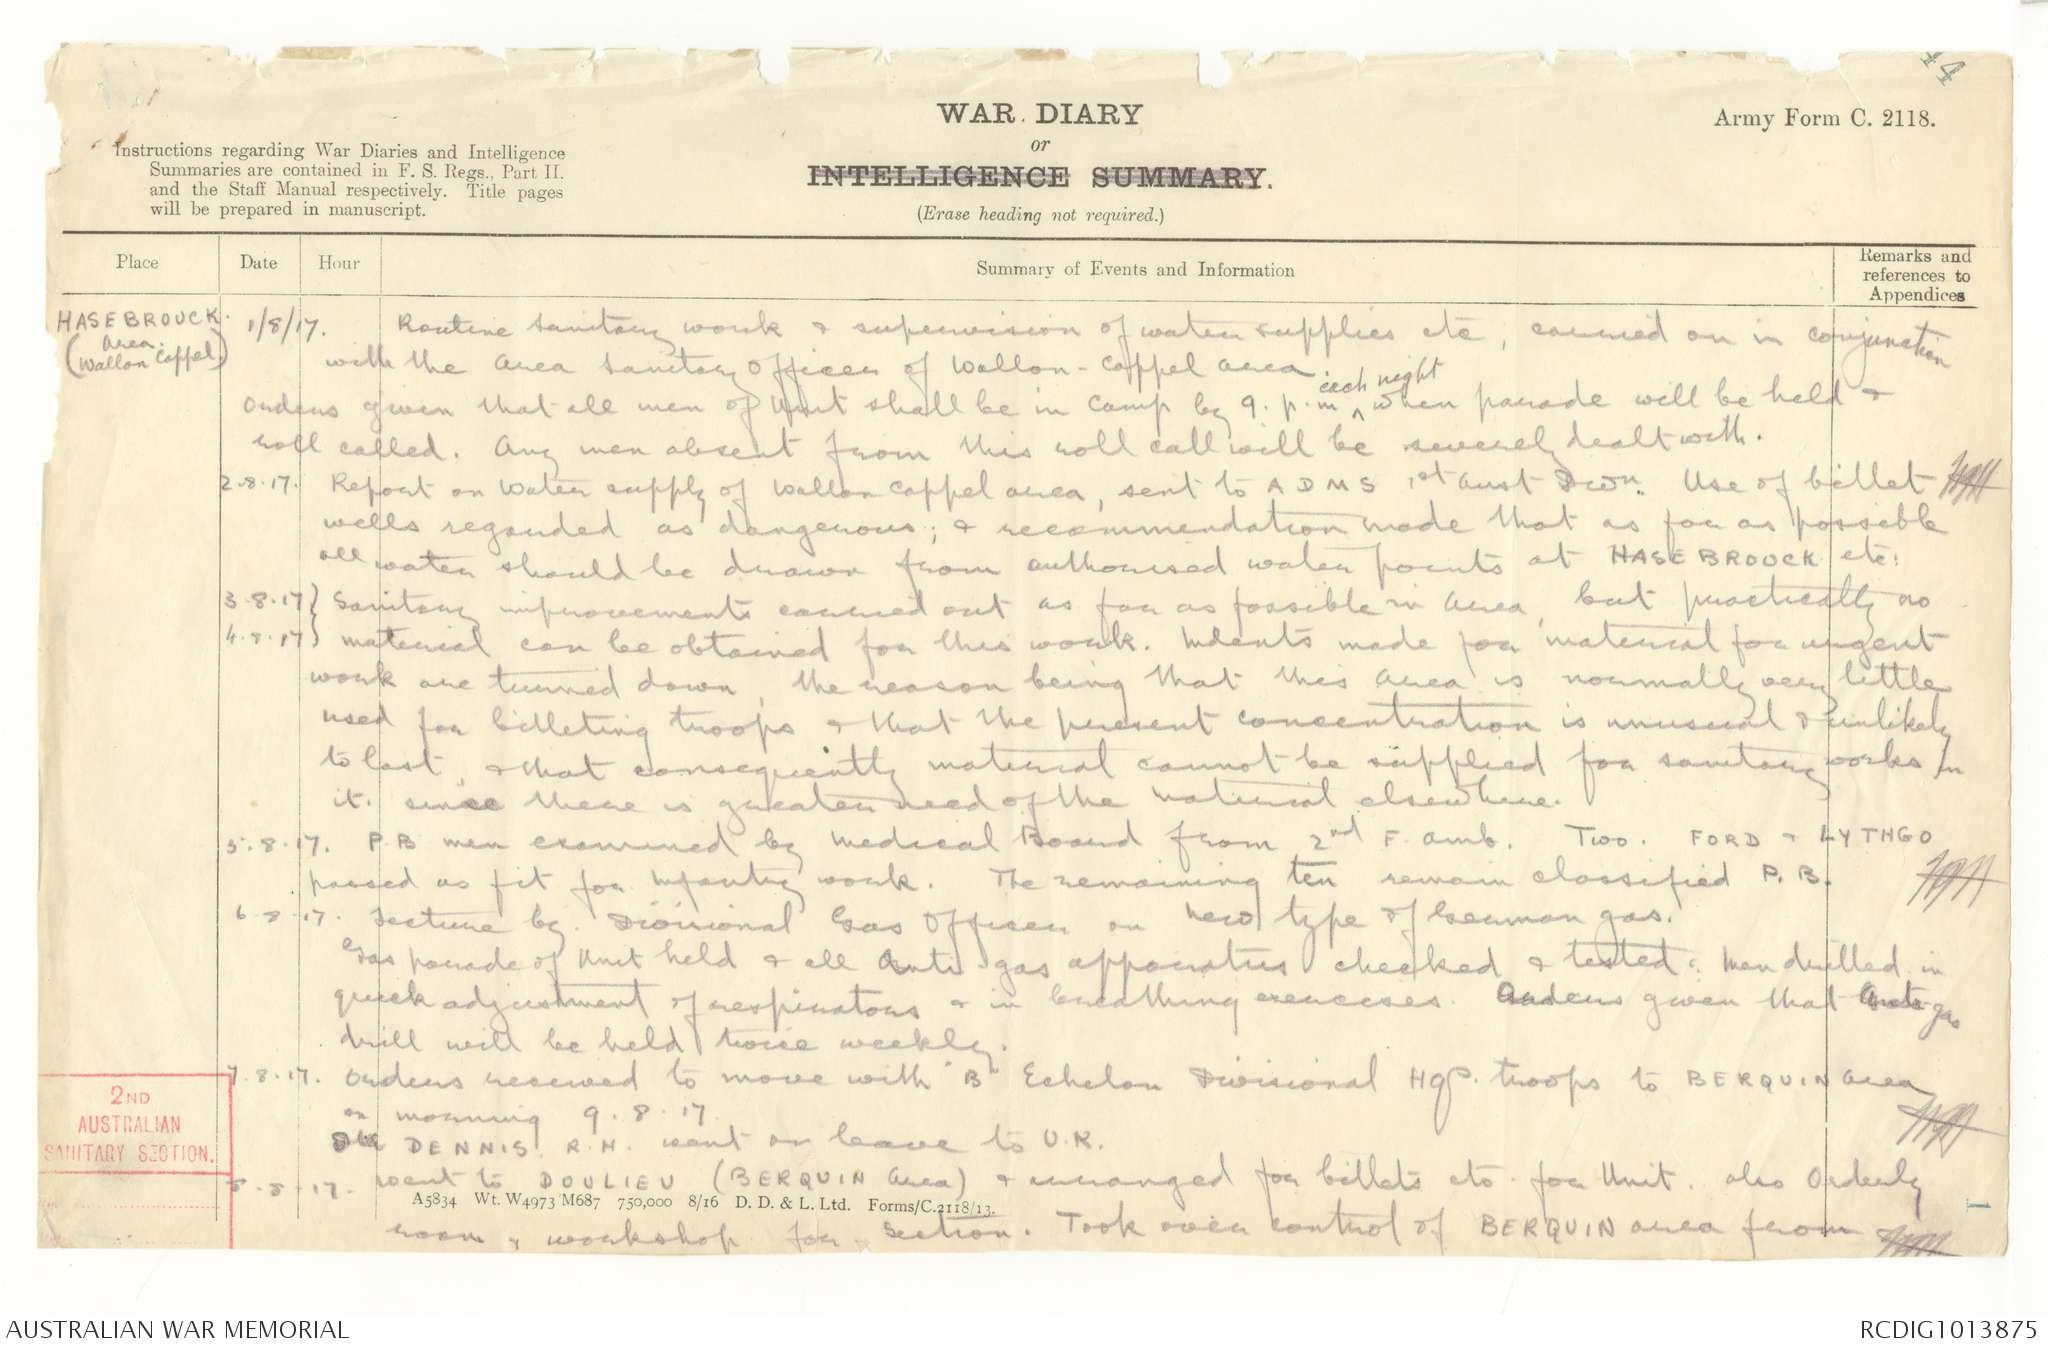 44
WAR DIARY
or
INTELLIGENCE SUMMARY.
(Erase heading not required.)
Army Form C. 2118.
Instructions regarding War Diaries and Intelligence
Summaries are contained in F. S. Regs., Part II.
and the Staff Manual respectively. Title pages
will be prepared in manuscript.
Place
Date
Hour
Summary of Events and Information
Remarks and
references to
Appendices
HASEBROUCK.
(Area.
Wallon Cappel)
1/8/17. Routine sanitary work & supervision of water supplies etc, carried on in conjunction
with the Area Sanitary Officer of Wallon-Cappel area
Orders given that all men of Unit shall be in Camp by 9. p.m ^ each night when parade will be held &
roll called. Any men absent from this roll call will be severely dealt with.
2.8.17. Report on water supply of Wallon Cappel area, sent to ADMS 1st Aust Divn. Use of billet
wells regarded as dangerous; & recommendation made that as far as possible
all water should be drawn from authorised water points at HASEBROUCK etc.
3.8.17} Sanitary improvements carried out as far as possible in area, but practically no
4.8.17} material can be obtained for this work. Indents made for material for urgent
work are turned down, the reason being that this area is normally very little
used for billeting troops & that the present concentration is unusual & unlikely
to last, & that consequently material cannot be supplied for sanitary works in
it. since there is greater need of the material elsewhere.
5.8.17. P.B men examined by Medical Board from 2nd F. Amb. Two. FORD & LYTHGO
passed as fit for Infantry work. The remaining ten remain classified P.B.
6.8.17. Lecture by Divisional Gas Officer on new type of German gas.
Gas parade of Unit held & all Anti-gas apparatus checked & tested. Men drilled in
quick adjustment of respirators & in breathing exercises. Orders given that Anti-gas
drill will be held twice weekly.
7.8.17. Orders received to move with "B" Echelon Divisional Hqs. troops to BERQUIN area
on morning 9.8.17.
DENNIS. R.H. went on leave to U.K.
8.8.17. went to DOULIEU (BERQUIN Area) & arranged for billets etc for Unit. also Orderly
room & workshop for Section. Took over control of BERQUIN area from
2ND
AUSTRALIAN
SANITARY SECTION.
A5834 Wt. W4973 M687 750,000 8/16 D. D. & L. Ltd. Forms/C.2118/13.
1
AUSTRALIAN WAR MEMORIAL
RCDIG1013875